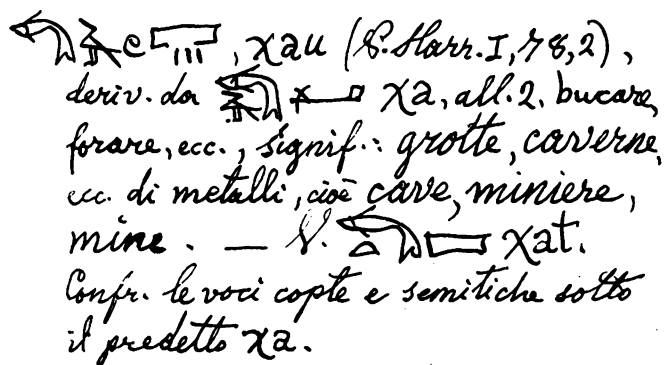 , χau (P. Harr. I, 78, 2),
deriv. da χa, all. 2, bucare,
forare, ecc., signif.: grotte, caverne,
ecc. di metalli, cioè cave, miniere,
mine. — V. χat.
Confr. le voci copte e semitiche sotto
il predetto χa.